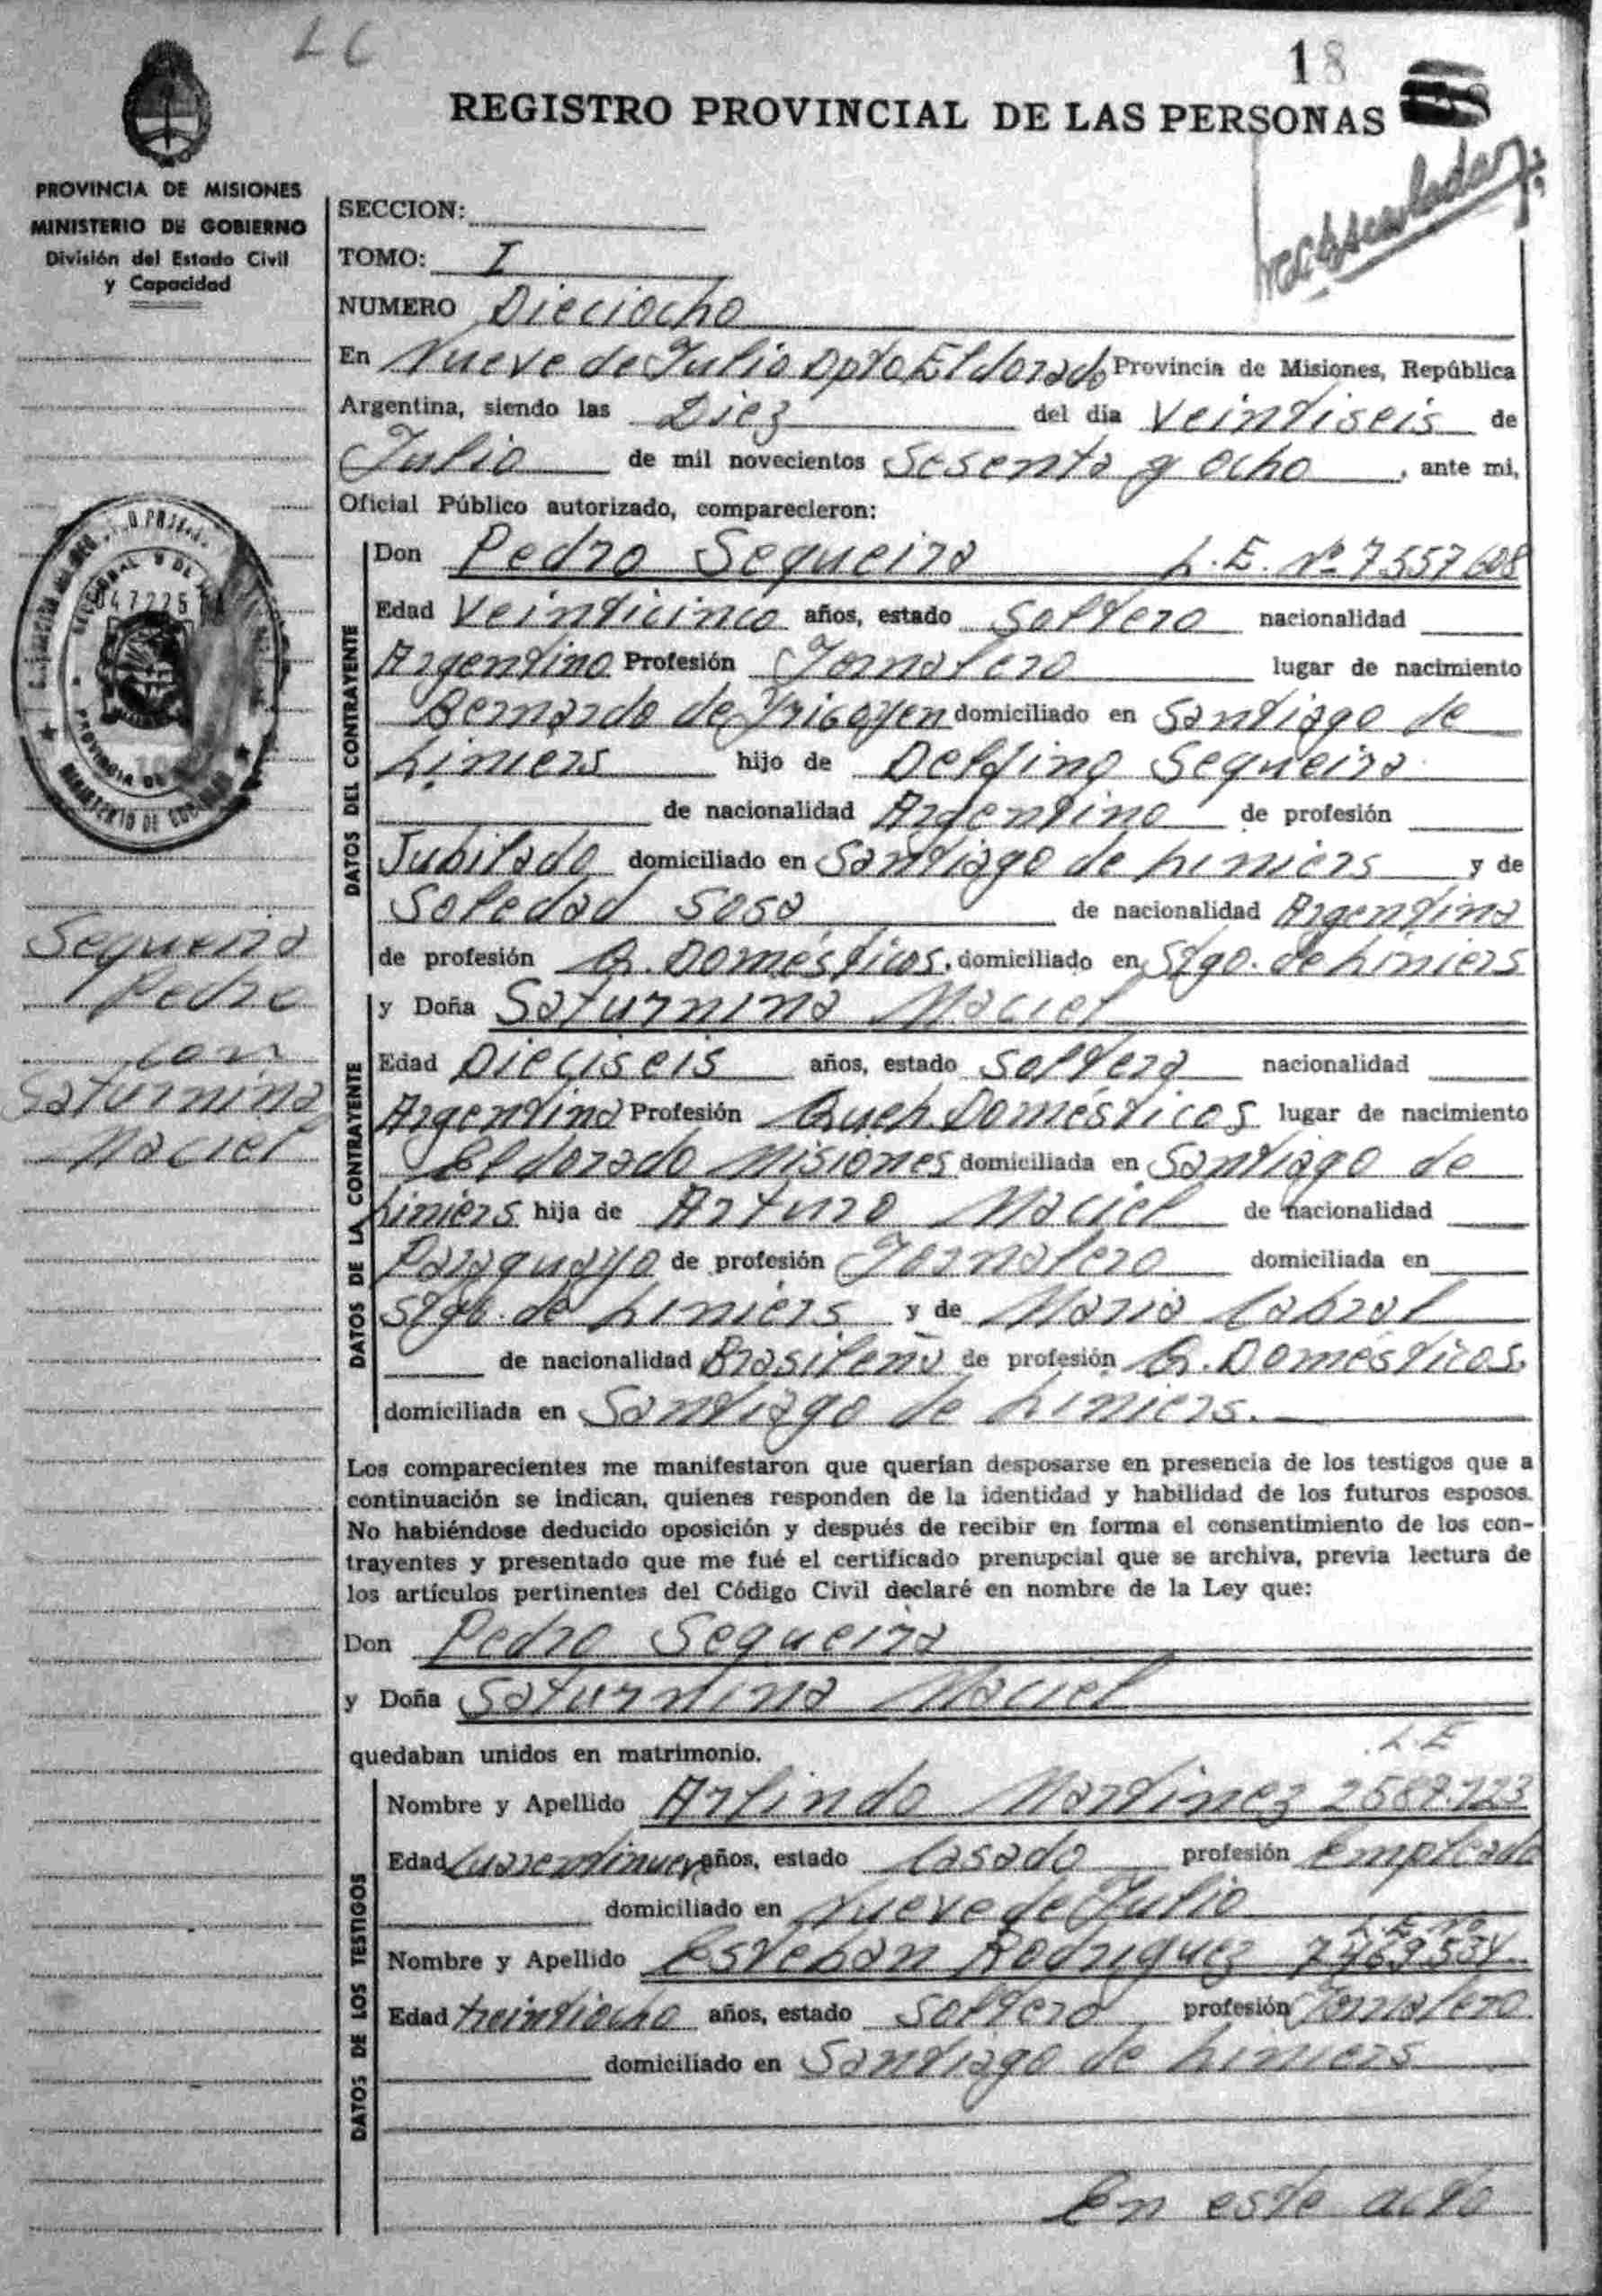 LC
18
REGISTRO PROVINCIAL DE LAS PERSONAS
PROVINCIA DE MISIONES
MINISTERIO DE GOBIERNO
División del Estado Civil
y Capacidad
SECCION:
TOMO: I
NUMERO Dieciocho
En Nueve de Julio Dpto Eldorado Provincia de Misiones, República
Argentina, siendo las Diez del día Veintiseis de
Julio de mil novecientos Sesenta y ocho, ante mi,
Oficial Público autorizado, comparecieron:
DATOS DEL CONTRAYENTE
Don Pedro Sequeira L.E. Nº 7557608
Edad Veinticinco años, estado Soltero nacionalidad
Argentino Profesión Jornalero lugar de nacimiento
Bernardo de Yrigoyen domiciliado en Santiago de
Liniers hijo de Delfino Sequeira
de nacionalidad Argentino de profesión
Jubilado domiciliado en Santiago de Liniers y de
Soledad Sosa de nacionalidad Argentina
de profesión Q. Domésticos. domiciliado en Stgo. de Liniers
DATOS DE LA CONTRAYENTE
y Doña Saturnina Maciel
Edad Dieciseis años, estado Soltera nacionalidad
Argentina Profesión Queh. Domésticos lugar de nacimiento
Eldorado Misiones domiciliada en Santiago de
Liniers hija de Arturo Maciel de nacionalidad
Paraguayo de profesión Jornalero domiciliada en
Stgo. de Liniers y de Maria Cabral
de nacionalidad Brasileña de profesión Q. Domésticos.
domiciliada en Santiago de Liniers.
Sequeira
Pedro
con
Saturnina
Maciel
Los comparecientes me manifestaron que querían desposarse en presencia de los testigos que a
continuación se indican, quienes responden de la identidad y habilidad de los futuros esposos.
No habiéndose deducido oposición y después de recibir en forma el consentimiento de los con-
trayentes y presentado que me fué el certificado prenupcial que se archiva, previa lectura de
los artículos pertinentes del Código Civil declaré en nombre de la Ley que:
Don Pedro Sequeira
y Doña Saturnina Maciel
quedaban unidos en matrimonio.
DATOS DE LOS TESTIGOS
L.E
Nombre y Apellido Arlindo Martinez
Edad Cuarentinueve años, estado Casado profesión Empleado
domiciliado en Nueve de Julio
L.E. Nº
Nombre y Apellido Esteban Rodriguez 7469534
Edad treintiocho años, estado Soltero profesión Jornalero
domiciliado en Santiago de Liniers
En este acto